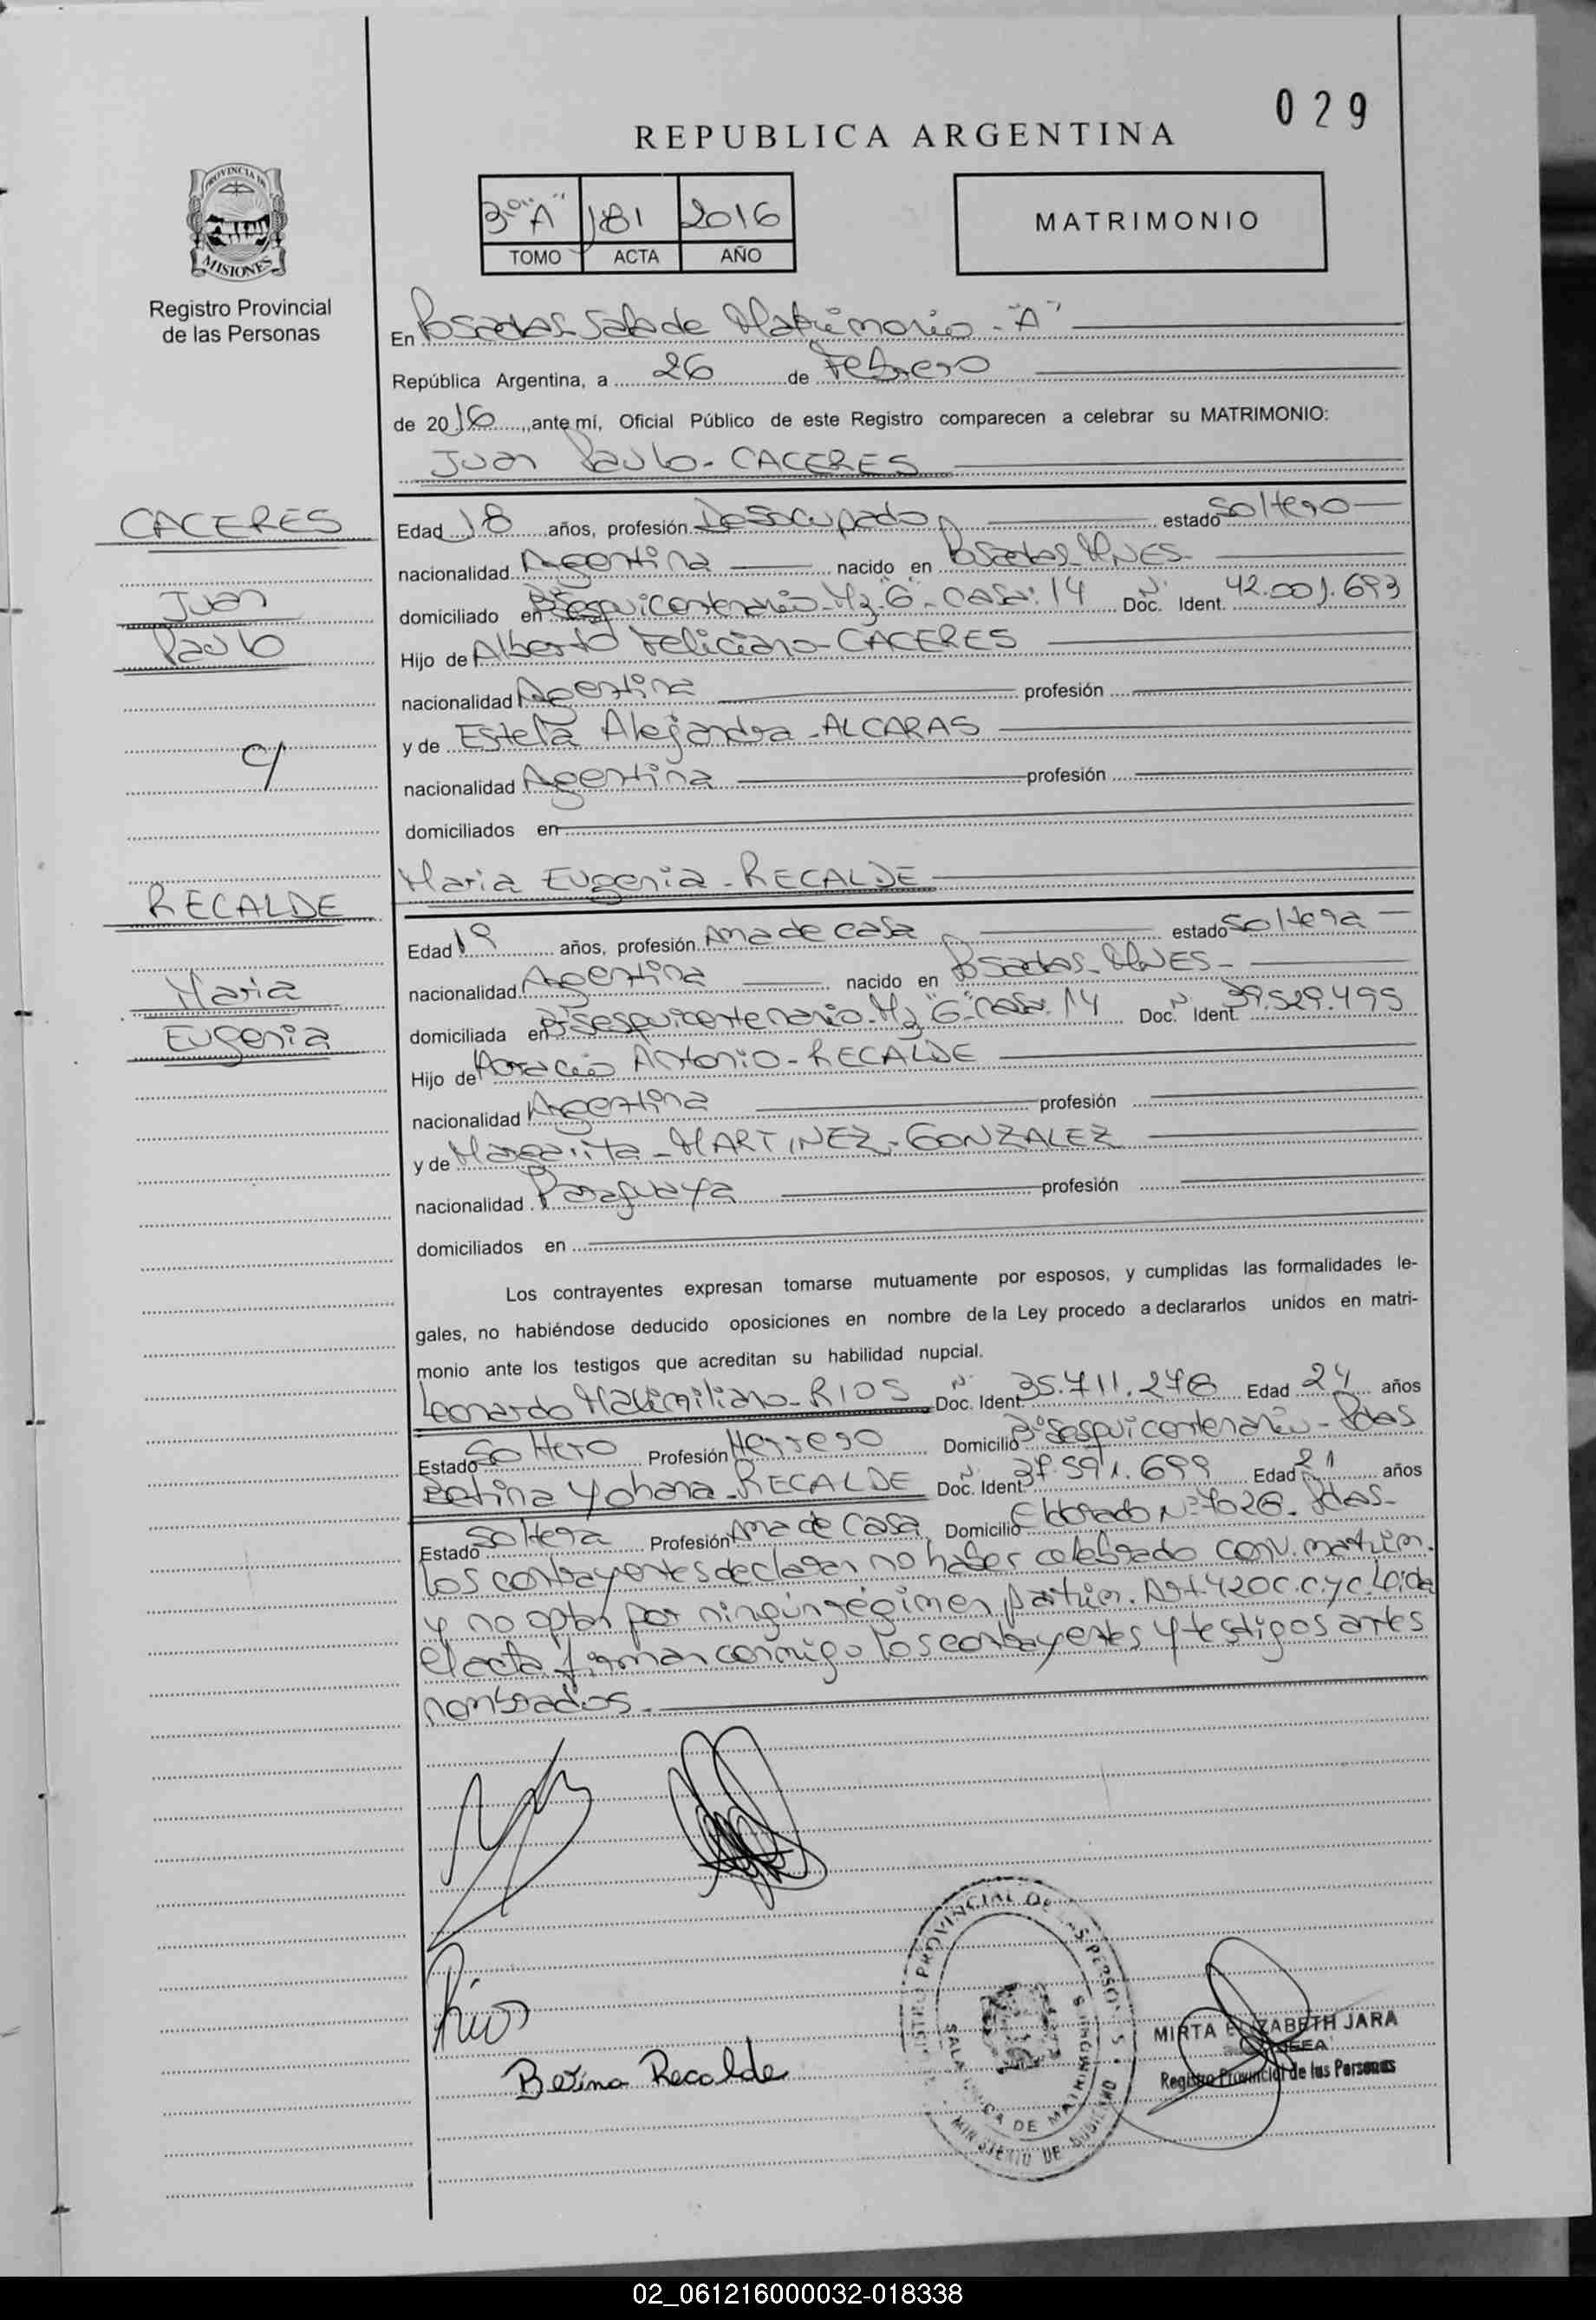 029
REPUBLICA ARGENTINA
PROVINCIA DE
MISIONES
Registro Provincial
de las Personas
3º "A" 181 2016
TOMO ACTA AÑO
MATRIMONIO
En Posadas Sala de Matrimonio - "A"
República Argentina, a 26 de Febrero
de 2016, ante mí, Oficial Público de este Registro comparecen a celebrar su MATRIMONIO:
Juan Paulo - CACERES
CACERES
Juan
Paulo
c/
RECALDE
Maria
Eugenia
Edad 18 años, profesión Desocupado estado Soltero
nacionalidad Argentina nacido en Posadas - MNES -
domiciliado en Bº Sesquicentenario - Mz "G" - Casa: 14 Doc. Nº Ident. 42.001.693
Hijo de Alberto Feliciano - CACERES
nacionalidad Argentina profesión
y de Estela Alejandra - ALCARAS
nacionalidad Argentina profesión
domiciliados en
Maria Eugenia - RECALDE
Edad 19 años, profesión Ama de casa estado Soltera
nacionalidad Argentina nacido en Posadas - MNES -
domiciliada en Bº Sesquicentenario - Mz "G" - Casa: 14 Doc. Nº Ident. 39.529.495
Hijo de Horacio Antonio - RECALDE
nacionalidad Argentina profesión
y de Margarita - MARTINEZ - GONZALEZ
nacionalidad Paraguaya profesión
domiciliados en
Los contrayentes expresan tomarse mutuamente por esposos, y cumplidas las formalidades le-
gales, no habiéndose deducido oposiciones en nombre de la Ley procedo a declararlos unidos en matri-
monio ante los testigos que acreditan su habilidad nupcial.
Leonardo Maximiliano - RIOS Doc. Nº Ident. Edad 24 años
Estado Soltero Profesión Herrero Domicilio Bº Sesquicentenario - Pdas
Betina Yohana - RECALDE Doc. Nº Ident. 37.591.699 Edad 21 años
Estado Soltera Profesión Ama de Casa Domicilio Eldorado Nº 7026 - Pdas -
Los contrayentes declaran no haber celebrado conv. matrim.
y no optan por ningún régimen patrim. Art. 420 C.C. y C. Leida
el acta firman conmigo los contrayentes y testigos antes
nombrados.
Rios
Betina Recalde
REGISTRO PROVINCIAL DE LAS PERSONAS
MINISTERIO DE GOBIERNO
MIRTA ELIZABETH JARA
Registro Provincial de las Personas
02_061216000032-018338